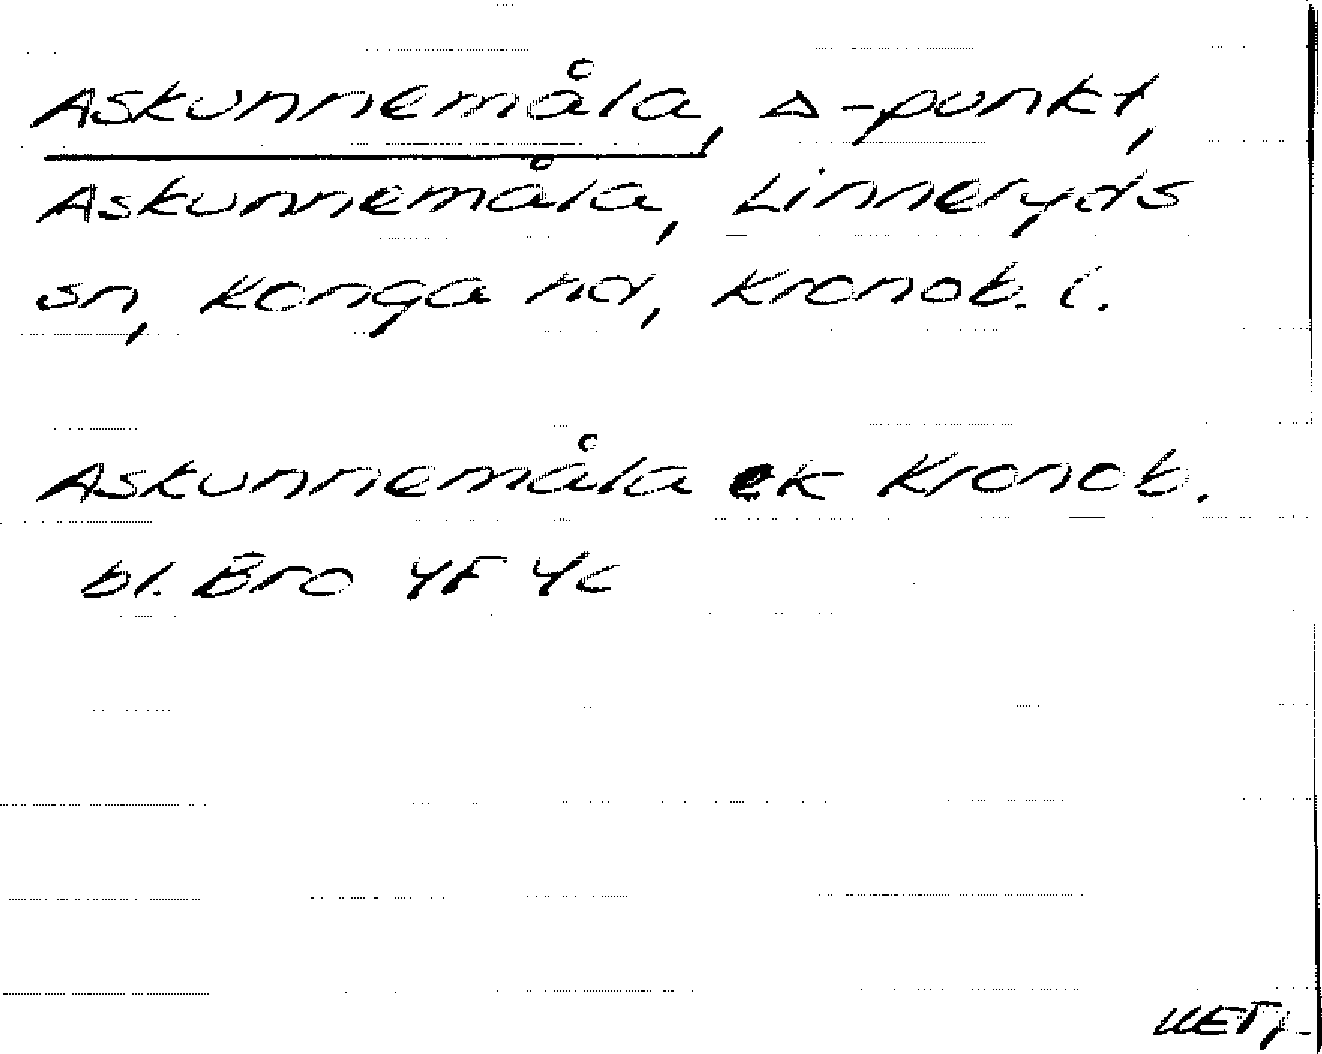 Askunnemåla, Δ-punkt,
Askunnemåla, Linneryds
sn, Konga hd, Kronob. l.
Askunnemåla ek Kronob.
bl. Bro 4F 4c